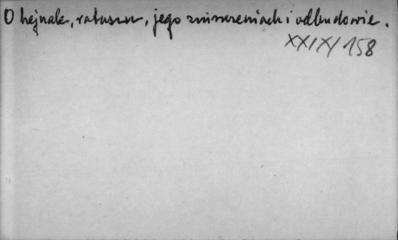 O hejnale, ratuszu, jego zniszczeniach i odbudowie.
XXIX/158